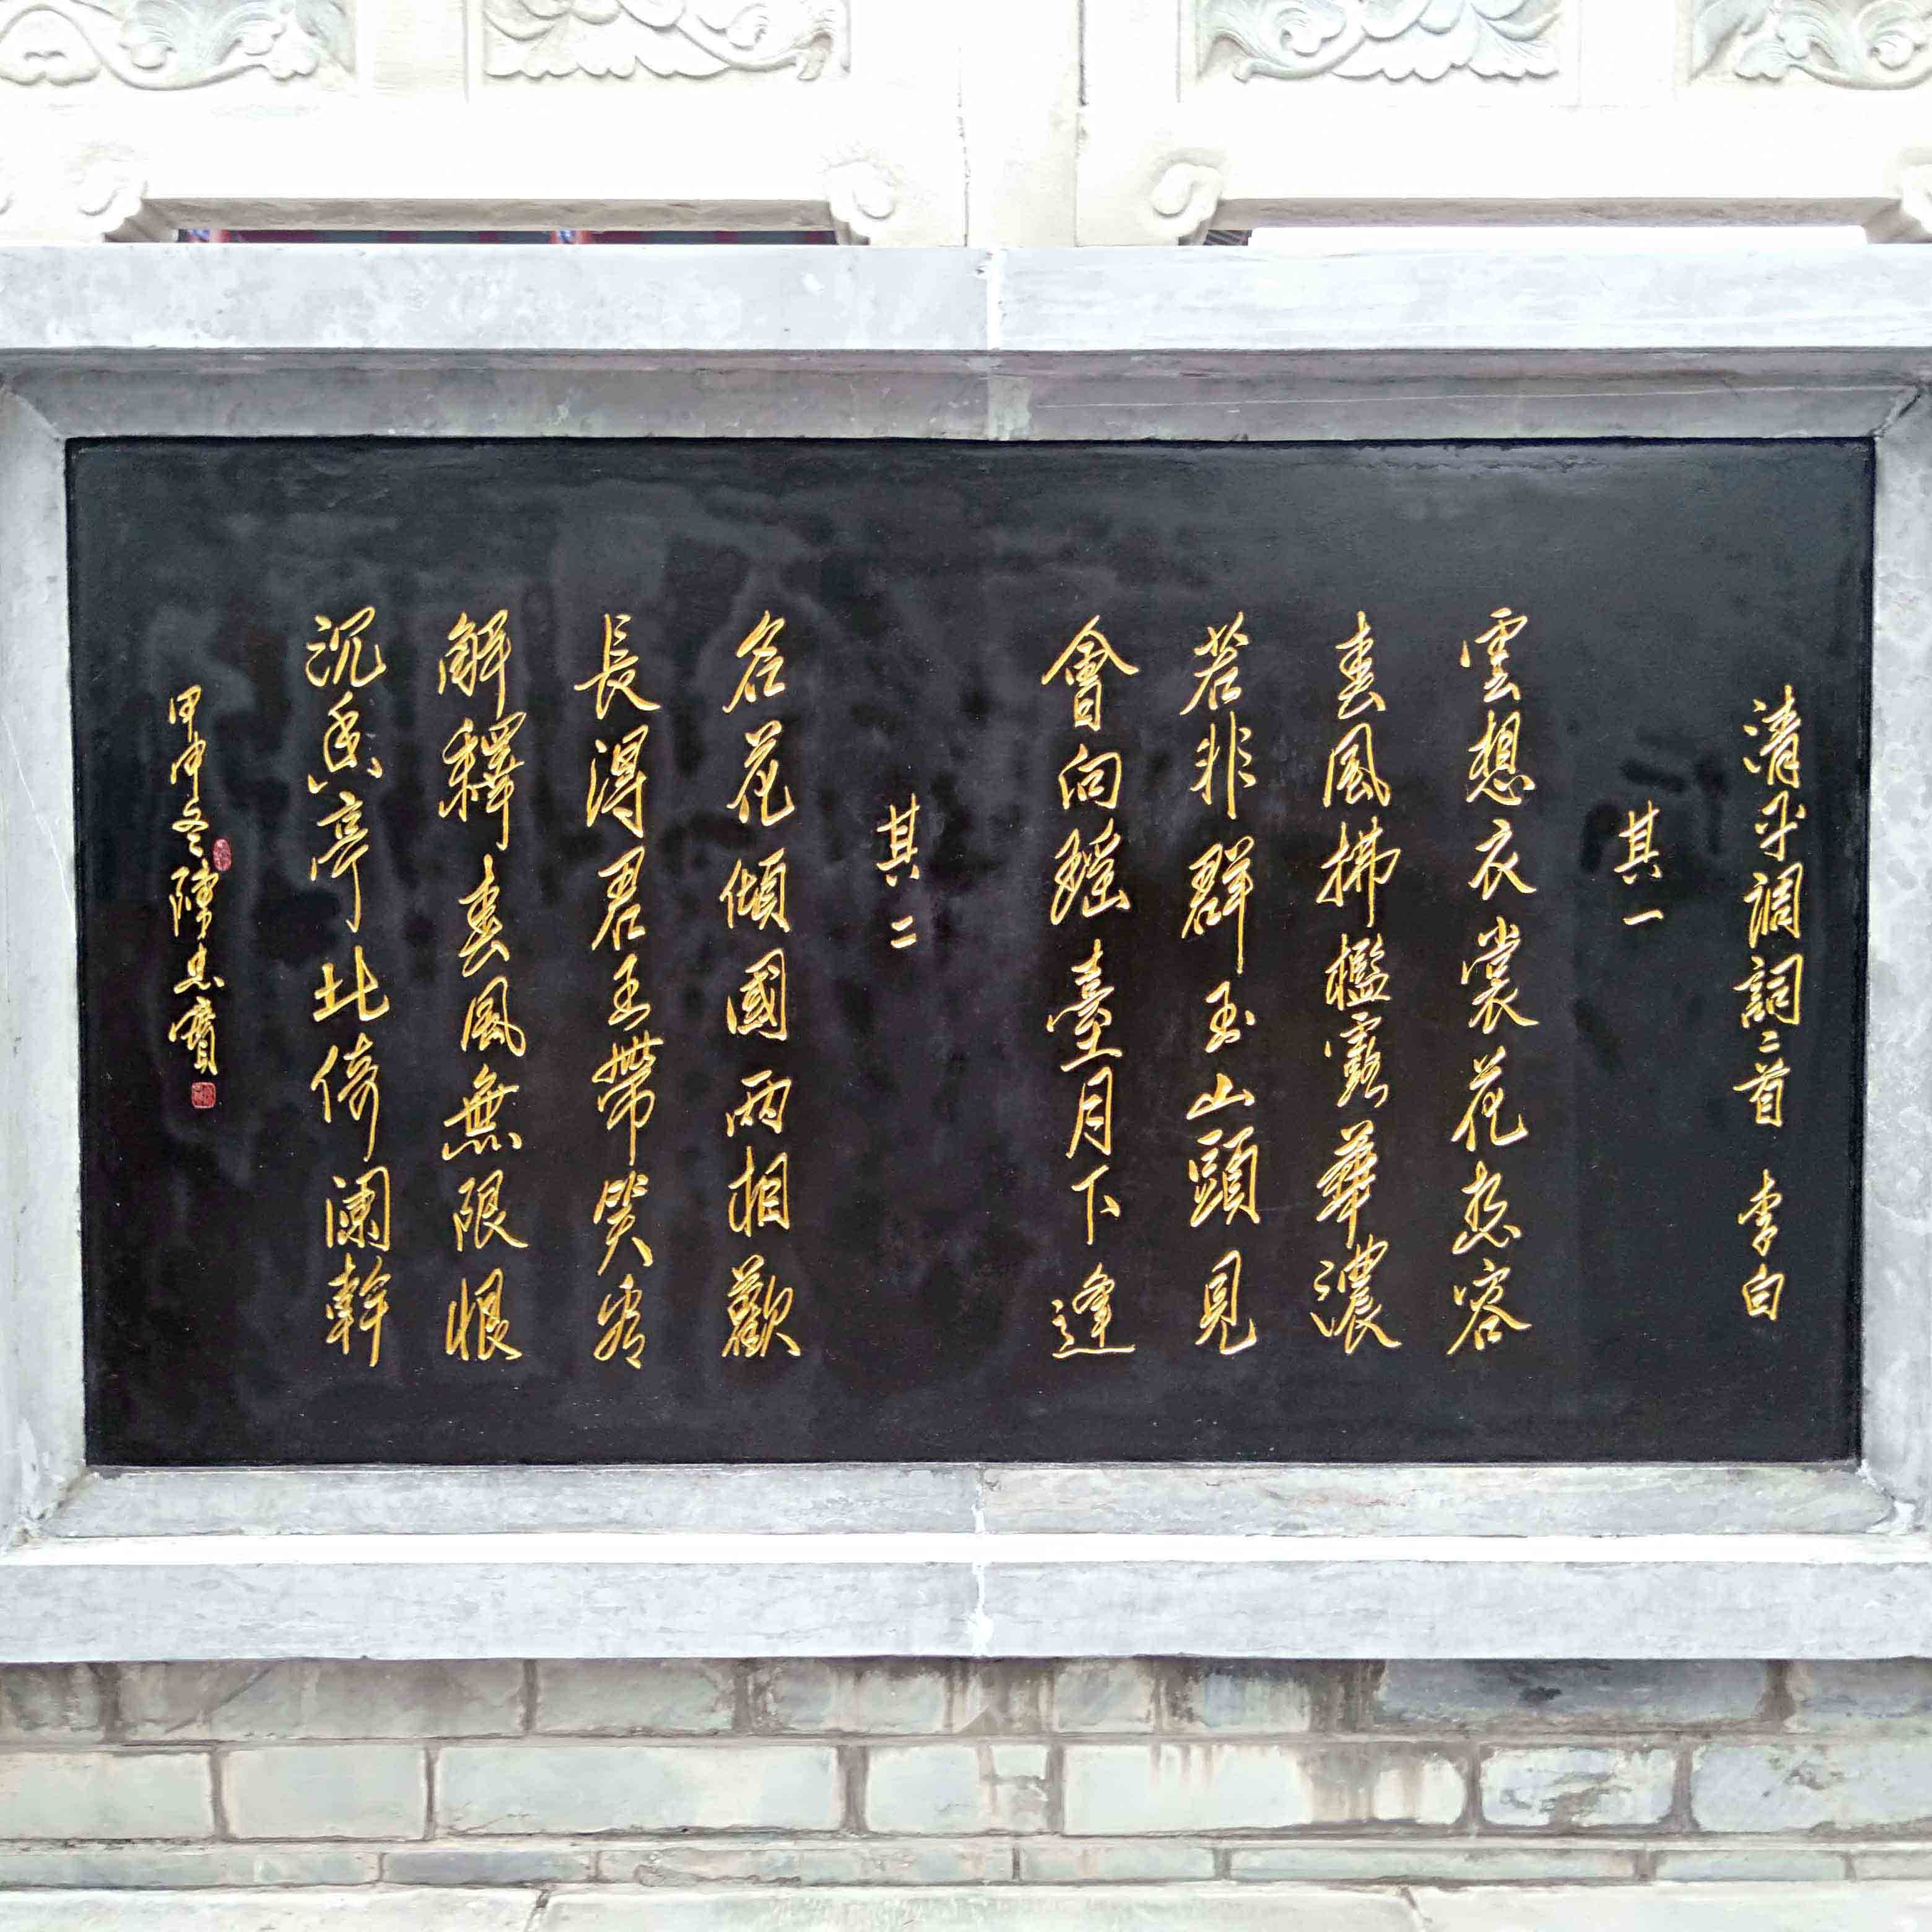 清平調詞二首 李白
其一
雲想衣裳花想容
春風拂檻露華濃
若非群玉山頭見
會向瑶臺月下逢
其二
名花傾國兩相歡
長得君王帶笑看
解釋春風無限恨
沉香亭北倚闌幹
甲申冬 陳忠寶